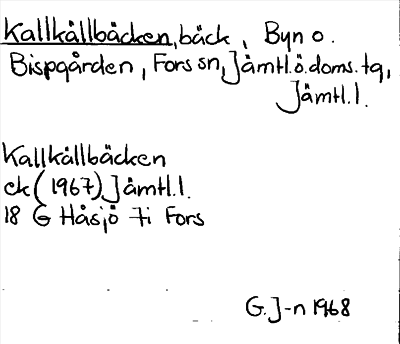 Kallkällbäcken, bäck, Byn o.
Bispgården, Fors sn, Jämtl.ö.doms.tg,
Jämtl.l.
Kallkällbäcken
ek (1967), Jämtl.l.
18 G Håsjö 7i Fors
G.J-n 1968